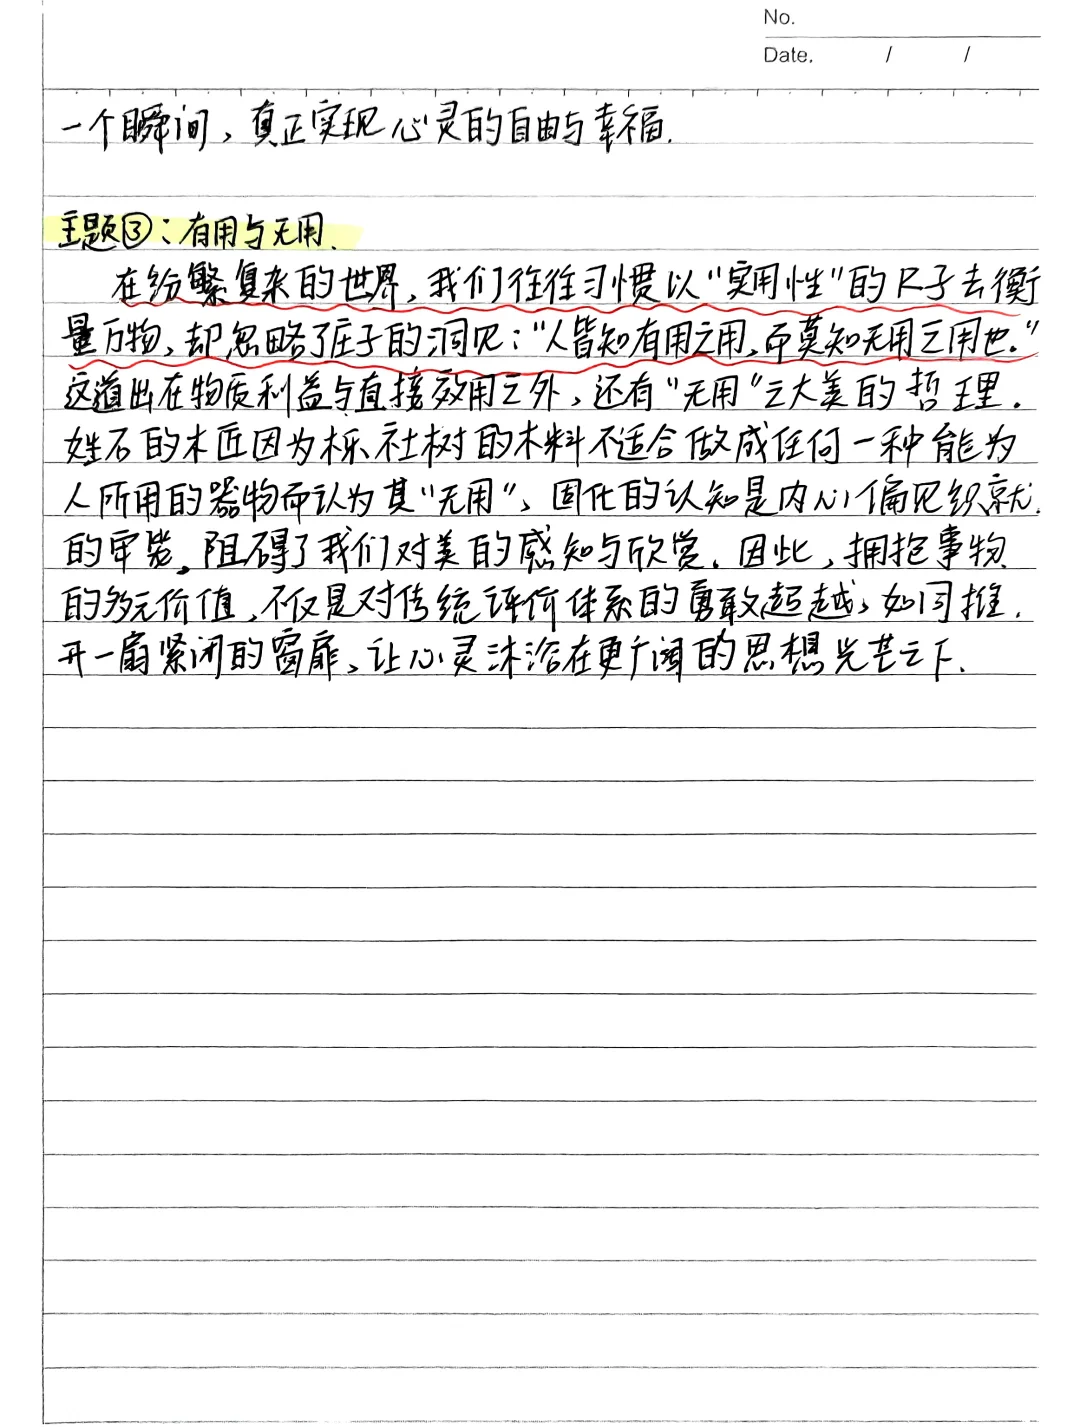 No.
Date. / /
一个瞬间，真正实现心灵的自由与幸福.
主题③：有用与无用.
在纷繁复杂的世界，我们往往习惯以“实用性”的尺子去衡
量万物，却忽略了庄子的洞见：“人皆知有用之用，而莫知无用之用也.”
这道出在物质利益与直接效用之外，还有“无用”之大美的哲理.
姓石的木匠因为栎社树的木料不适合做成任何一种能为
人所用的器物而认为其“无用”，固化的认知是内心偏见织就
的牢笼，阻碍了我们对美的感知与欣赏. 因此，拥抱事物
的多元价值，不仅是对传统评价体系的勇敢超越，如同推
开一扇紧闭的窗扉，让心灵沐浴在更广阔的思想光芒之下.